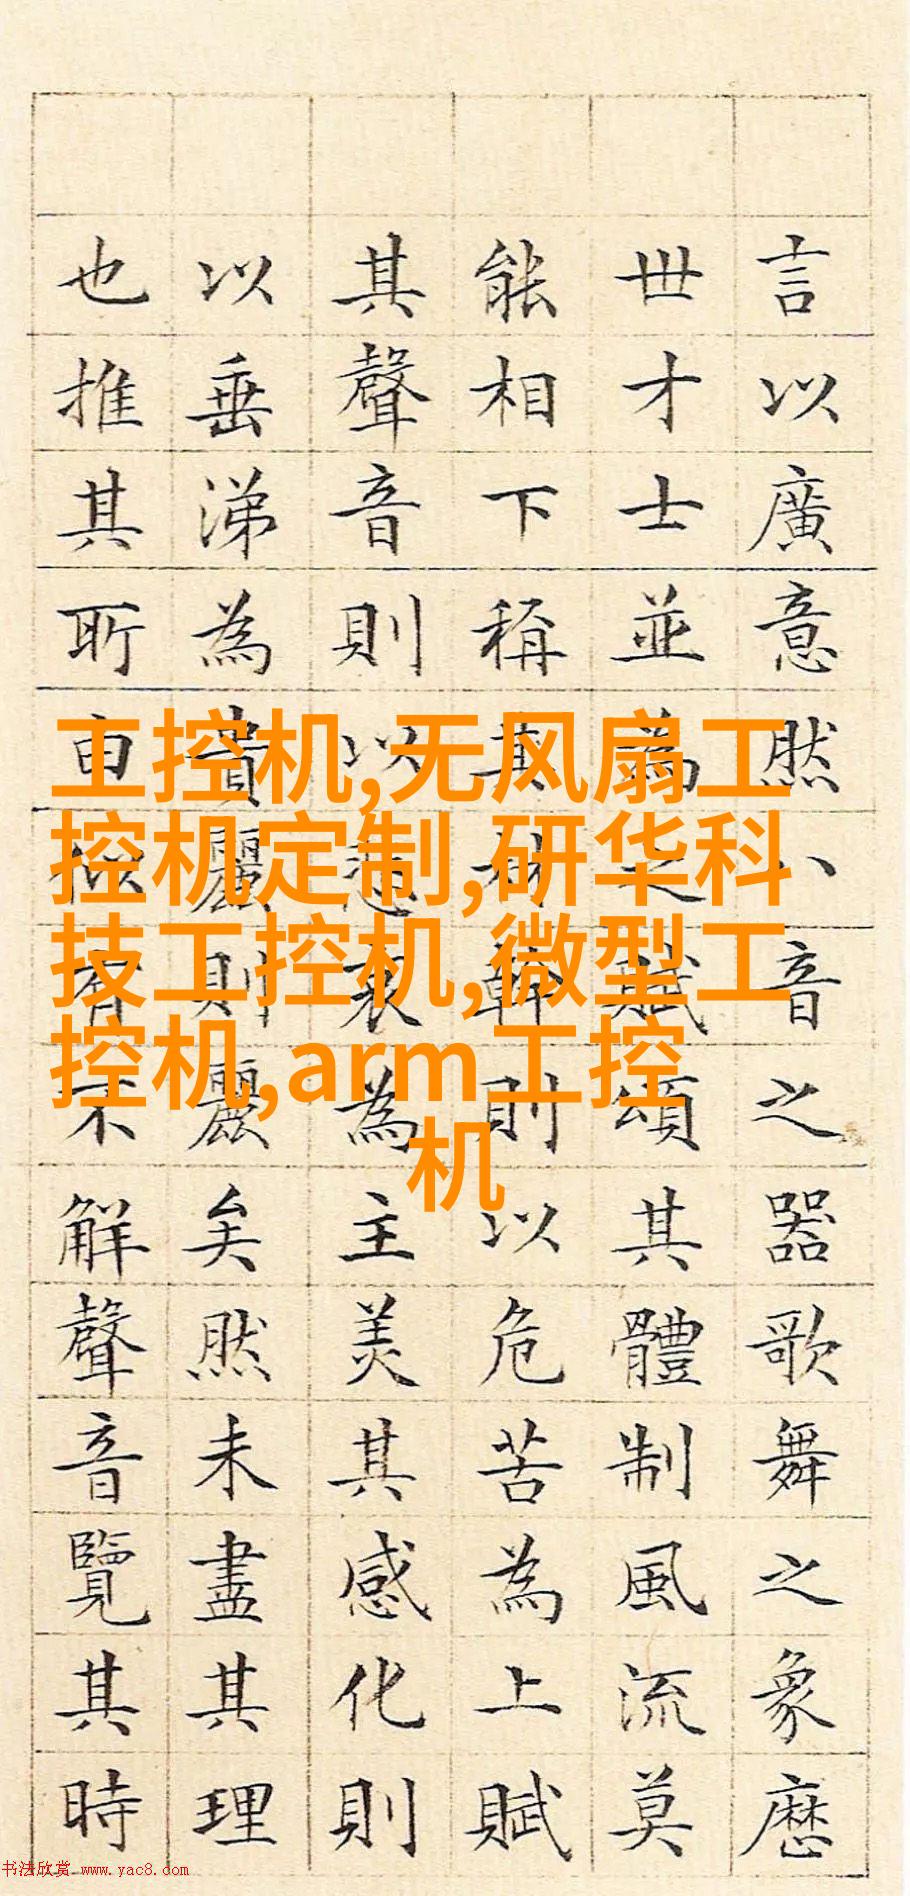 言以廣意然八音之器歌舞之象歷
世才士並為之賦頌其體制風流莫
能相下稱其材幹則以危苦為上賦
其聲音則以悲哀為主美其感化則
以垂涕為貴麗則麗矣然未盡其理
也推其所由似有不解聲音覽其時
工控机,无风扇工
控机定制,研华科
技工控机,微型工
控机,arm工控
机
书法欣赏 www.yac8.com